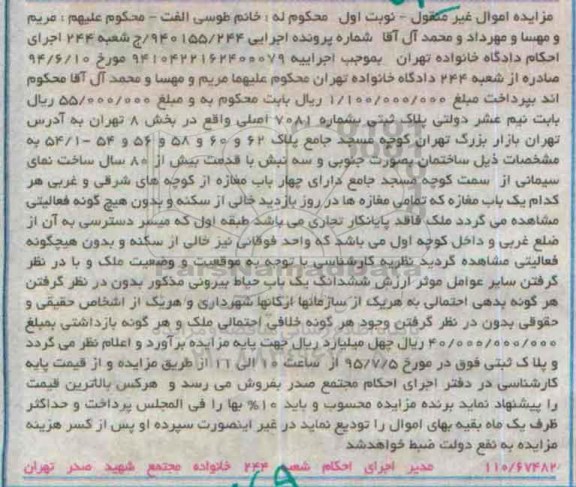 مزایده اموال غیر منقول - نوبت اول محکوم له : خانم طوسی الفت - محکوم علیهم : مریم
و مهسا و مهرداد و محمد آل آقا شماره پرونده اجرایی ۹۴۰۱۵۵/۲۴۴/ج شعبه ۲۴۴ اجرای
احکام دادگاه خانواده تهران بموجب اجراییه ۹۴۱۰۴۲۲۱۶۲۴۰۰۰۷۹ مورخ ۹۴/۶/۱۰
صادره از شعبه ۲۴۴ دادگاه خانواده تهران محکوم علیهما مریم و مهسا و محمد آل آقا محکوم
اند بپرداخت مبلغ ۱/۱۰۰/۰۰۰/۰۰۰ ریال بابت محکوم به و مبلغ ۵۵/۰۰۰/۰۰۰ ریال
بابت نیم عشر دولتی پلاک ثبتی بشماره ۷۰۸۱ اصلی واقع در بخش ۸ تهران به آدرس
تهران بازار بزرگ تهران کوچه مسجد جامع پلاک ۶۲ و ۶۰ و ۵۸ و ۵۶ و ۵۴ -۵۴/۱ به
مشخصات ذیل ساختمان بصورت جنوبی و سه نبش با قدمت بیش از ۸۰ سال ساخت نمای
سیمانی از سمت کوچه مسجد جامع دارای چهار باب مغازه از کوچه های شرقی و غربی هر
کدام یک باب مغازه که تمامی مغازه ها در روز بازدید خالی از سکنه و بدون هیچ گونه فعالیتی
مشاهده می گردد ملک فاقد پایانکار تجاری می باشد طبقه اول که میسر دسترسی به آن از
ضلع غربی و داخل کوچه اول می باشد که واحد فوقانی نیز خالی از سکنه و بدون هیچگونه
فعالیتی مشاهده گردید نظریه کارشناسی با توجه به موقعیت و وضعیت ملک و با در نظر
گرفتن سایر عوامل موثر ارزش ششدانگ یک باب حیاط بیرونی مذکور بدون در نظر گرفتن
هر گونه بدهی احتمالی به هریک از سازمانها ارکانها شهرداری و هریک از اشخاص حقیقی و
حقوقی بدون در نظر گرفتن وجود هر گونه خلافی احتمالی ملک و هر گونه بازداشتی بمبلغ
۴۰/۰۰۰/۰۰۰/۰۰۰ ریال چهل میلیارد ریال جهت پایه مزایده برآورد و اعلام نظر می گردد
و پلاک ثبتی فوق در مورخ ۹۵/۷/۵ از ساعت ۱۰ الی ۱۱ از طریق مزایده و از قیمت پایه
کارشناسی در دفتر اجرای احکام مجتمع صدر بفروش می رسد و هرکس بالاترین قیمت
را پیشنهاد نماید برنده مزایده محسوب و باید ۱۰% بها را فی المجلس پرداخت و حداکثر
ظرف یک ماه بقیه بهای اموال را تودیع نماید در غیر اینصورت سپرده او پس از کسر هزینه
مزایده به نفع دولت ضبط خواهدشد
۱۱۰/۶۷۴۸۲ مدیر اجرای احکام شعبه ۲۴۴ خانواده مجتمع شهید صدر تهران